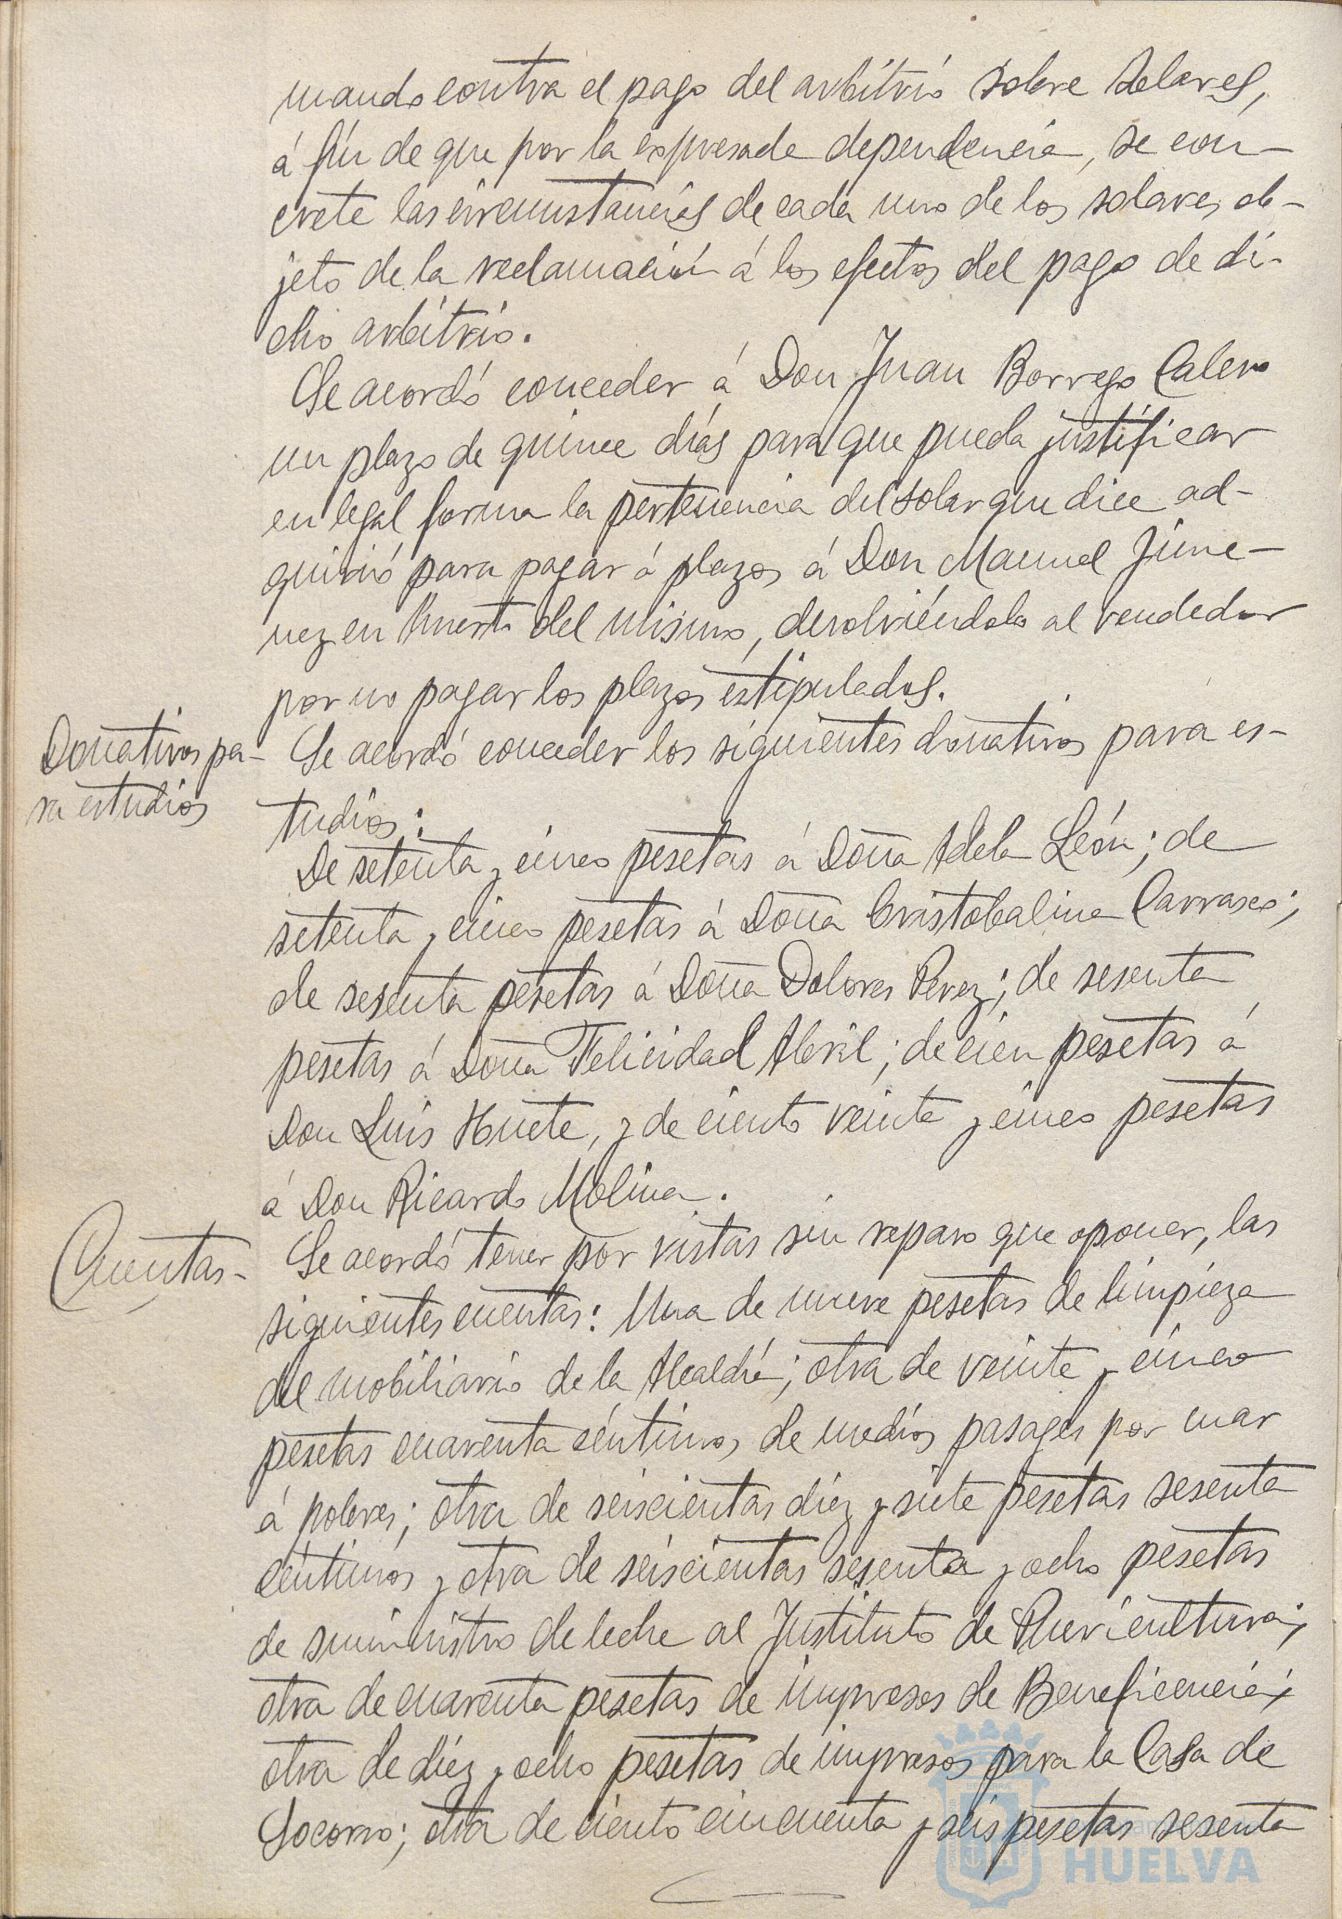 mando contra el pago del arbitrio sobre solares,
á fin de que por la expresada dependencia, se con-
crete las circunstancias de cada uno de los solares ob-
jeto de la reclamación á los efectos del pago de di-
cho arbitrio.
Se acordó conceder á Don Juan Borrego Calero
un plazo de quince días para que pueda justificar
en legal forma la pertenencia del solar que dice ad-
quirió para pagar á plazos á Don Manuel Jime-
nez en huerto del mismo, devolviéndolo al vendedor
por no pagar los plazos estipulados.
Donativos pa-
ra estudios
Se acordó conceder los siguientes donativos para es-
tudios:
De setenta y cinco pesetas á Doña Adela León; de
setenta y cinco pesetas á Doña Cristobalina Carrasco;
de sesenta pesetas á Doña Dolores Perez; de sesenta
pesetas á Doña Felicidad Abril; de cien pesetas á
Don Luis Huete, y de ciento veinte y cinco pesetas
á Don Ricardo Molina.
Cuentas-
Se acordó tener por vistas sin reparo que oponer, las
siguientes cuentas: Una de nueve pesetas de limpieza
del mobiliario de la Alcaldía; otra de veinte y cinco
pesetas cuarenta céntimos, de medios pasages por mar
á pobres; otra de seiscientas diez y siete pesetas sesenta
céntimos y otra de seiscientas sesenta y ocho pesetas
de suministro de leche al Instituto de Puericultura;
otra de cuarenta pesetas de impresos de Beneficencia;
otra de diez y ocho pesetas de impresos para la Casa de
Socorro; otra de ciento cincuenta y seis pesetas sesenta
HUELVA